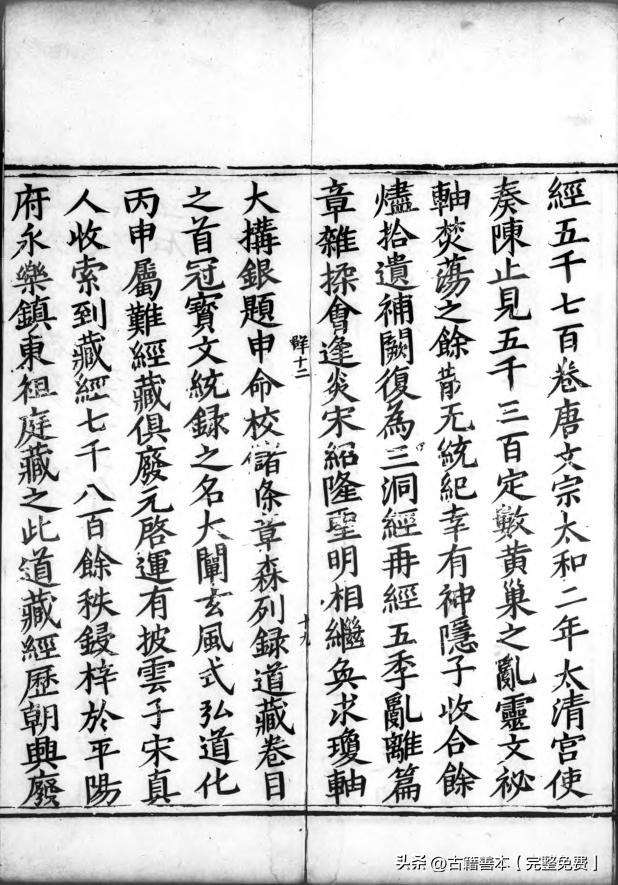 經五千七百卷唐文宗太和二年太清宮使
奏陳止見五千三百定數黃巢之亂靈文祕
軸焚蕩之餘散无統紀幸有神隱子收合餘
燼拾遺補闕復為三洞經再經五季亂離篇
章雜揉會逢炎宋紹隆聖明相繼奐求瓊軸
羣十二
十九
大搆銀題申命校讎條章森列錄道藏卷目
之首冠寶文統錄之名大闡玄風式弘道化
丙申屬難經藏俱廢元啓運有披雲子宋真
人收索到藏經七千八百餘秩鋟梓於平陽
府永樂鎮東祖庭藏之此道藏經歷朝興廢
头条 @古籍善本【完整免费】